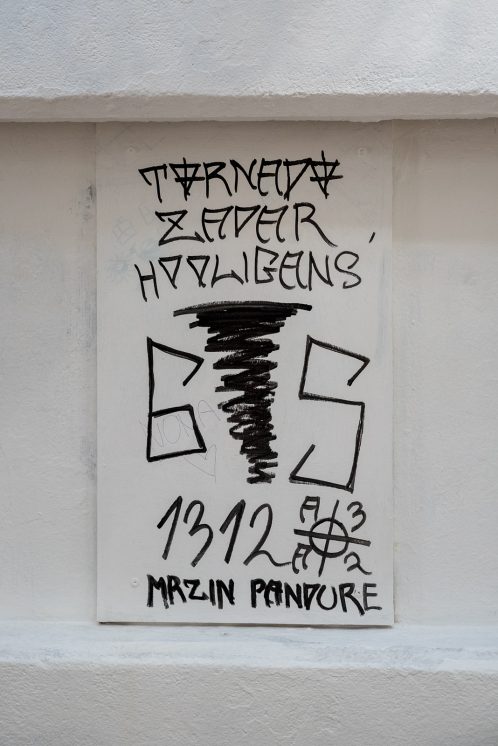 TORNADO
ZADAR
HOOLIGANS
6 S
1312 A 3
A 2
MRZIN PANDURE